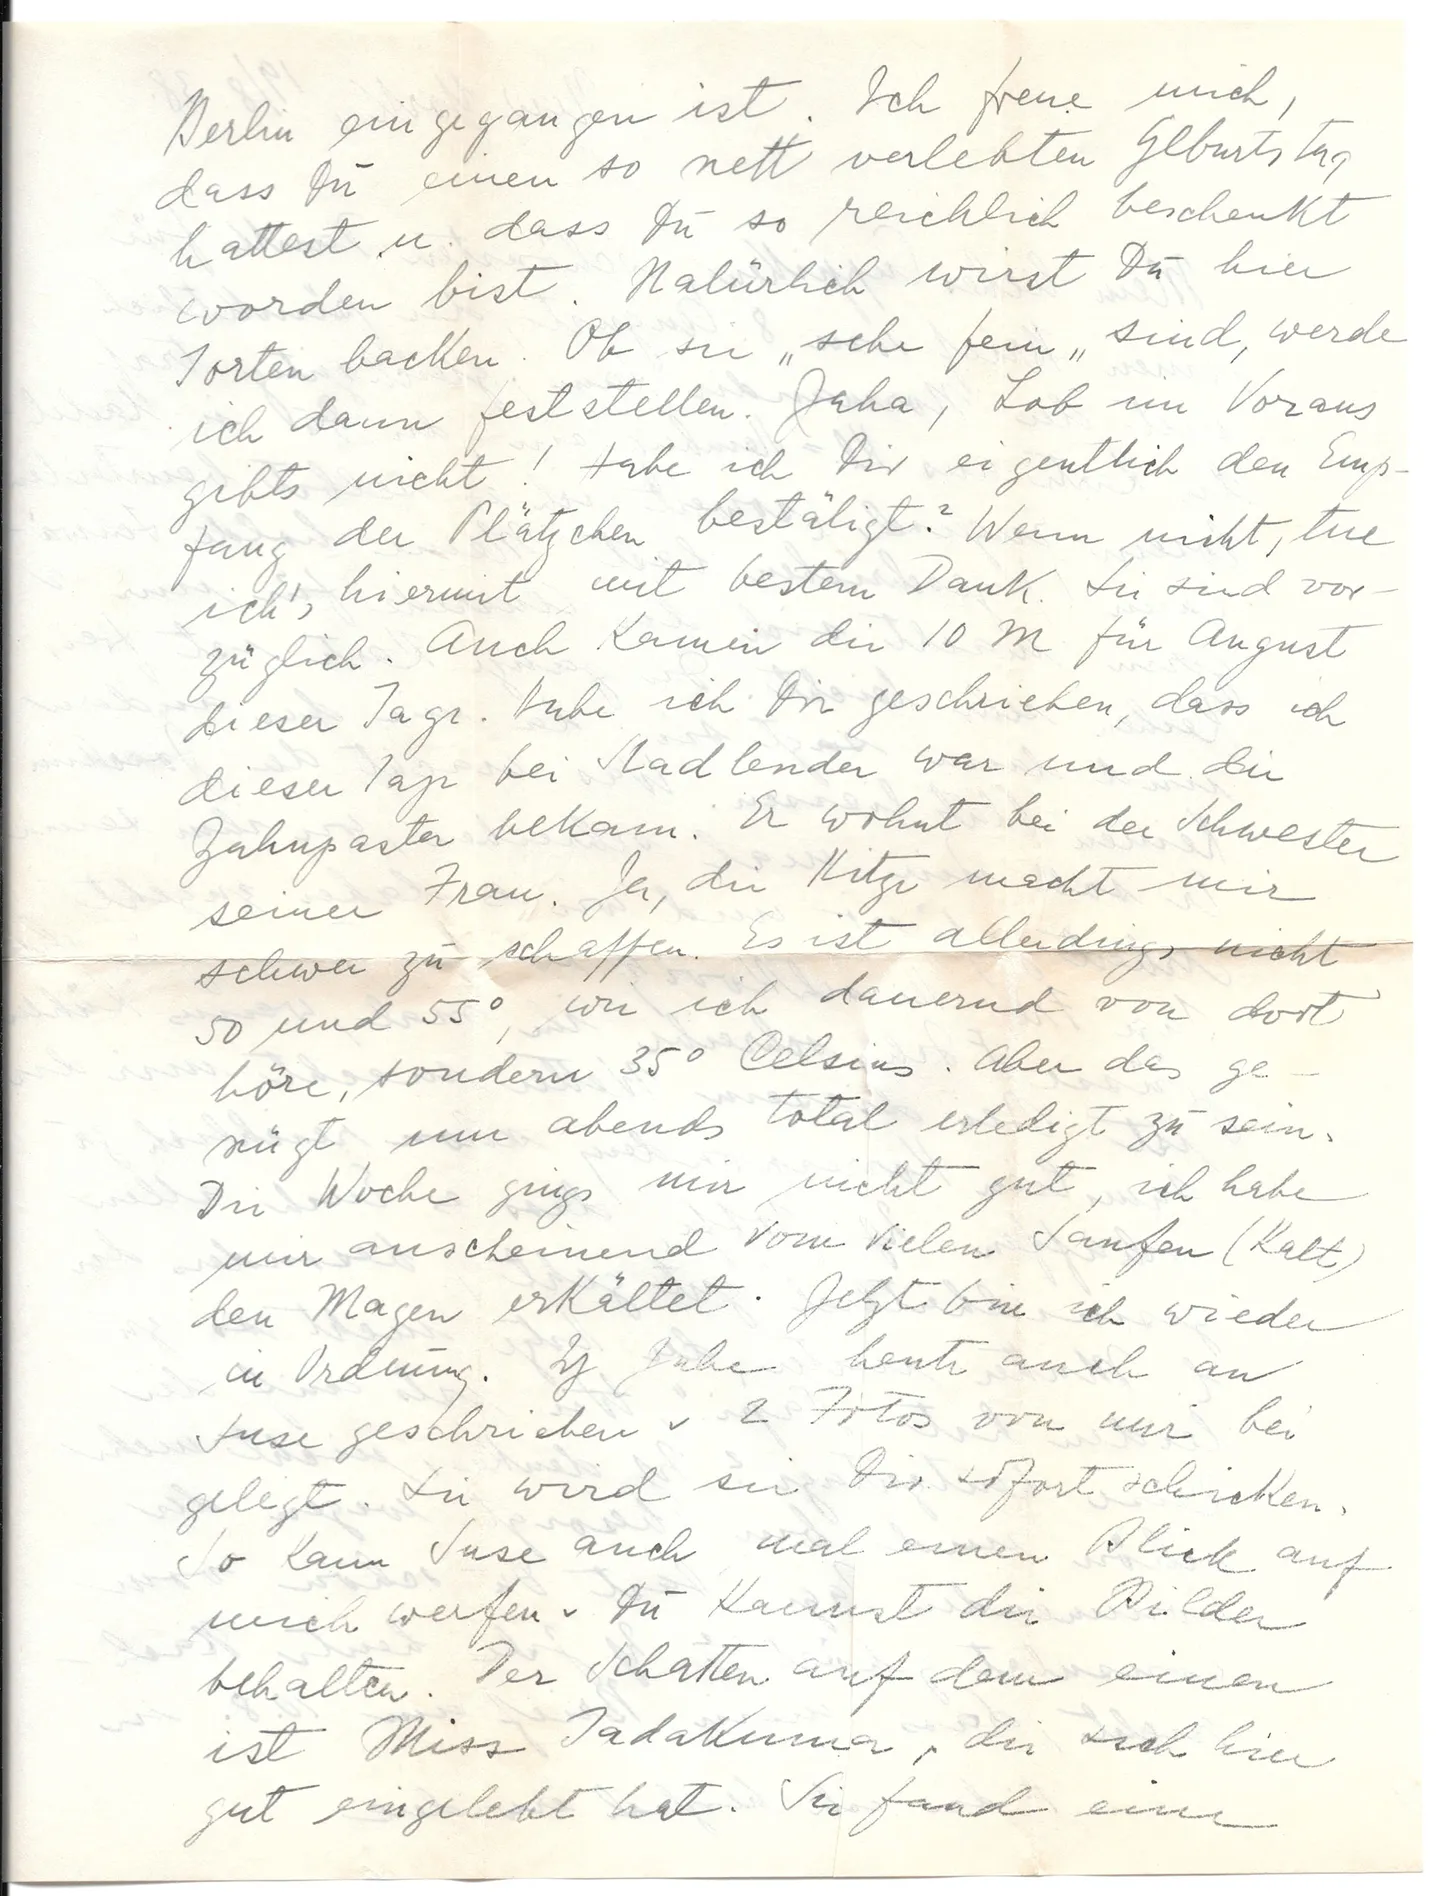 Berlin eingegangen ist. Ich freue mich,
dass Du einen so nett verlebten Geburtstag
hattest u. dass Du so reichlich beschenkt
worden bist. Natürlich wirst Du hier
Torten backen. Ob sie „sehr fein„ sind, werde
ich dann feststellen. Jaha, Lob im Voraus
gibts nicht! Habe ich Dir eigentlich den Emp-
fang der Plätzchen bestätigt? Wenn nicht, tue
ich's hiermit mit bestem Dank. Sie sind vor-
züglich. Auch kamen die 10 M für August
dieser Tage. Habe ich Dir geschrieben, dass ich
dieser Tage bei Stadlender war und die
Zahnpaster bekam. Er wohnt bei der Schwester
seiner Frau. Ja, die Hitze macht mir
schwer zu schaffen. Es ist allerdings nicht
50 und 55°, wie ich dauernd von dort
höre, sondern 35° Celsius. Aber das ge-
nügt um abends total erledigt zu sein.
Die Woche gings mir nicht gut, ich habe
mir anscheinend vom vielen Saufen (Kalt)
den Magen erkältet. Jetzt bin ich wieder
in Ordnung. Ich habe heute auch an
Suse geschrieben u 2 Fotos von mir bei
gelegt. Sie wird sie Dir sofort schicken.
So kann Suse auch mal einen Blick auf
mich werfen. Du kannst die Bilder
behalten. Der Schatten auf dem einen
ist Miss Tadakuma, die sich hier
gut eingelebt hat. Sie fand eine